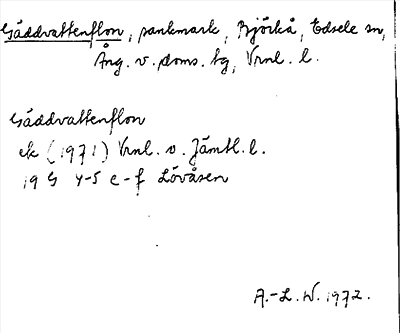 Gäddvattenflon, sankmark, Björkå, Edsele sn,
Ång. v. doms. tg, Vrnl. l.
Gäddvattenflon
ek (1971) Vrnl. o. Jämtl. l.
19 G 4-5 e-f Lövåsen
A.-L. W. 1972.